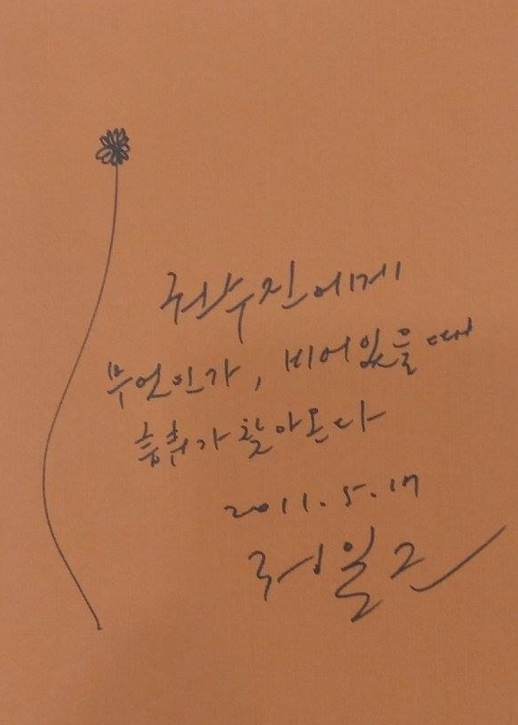 권수진에게
무언인가, 비어있을때
흥취가 찾아온다
2011. 5. 17